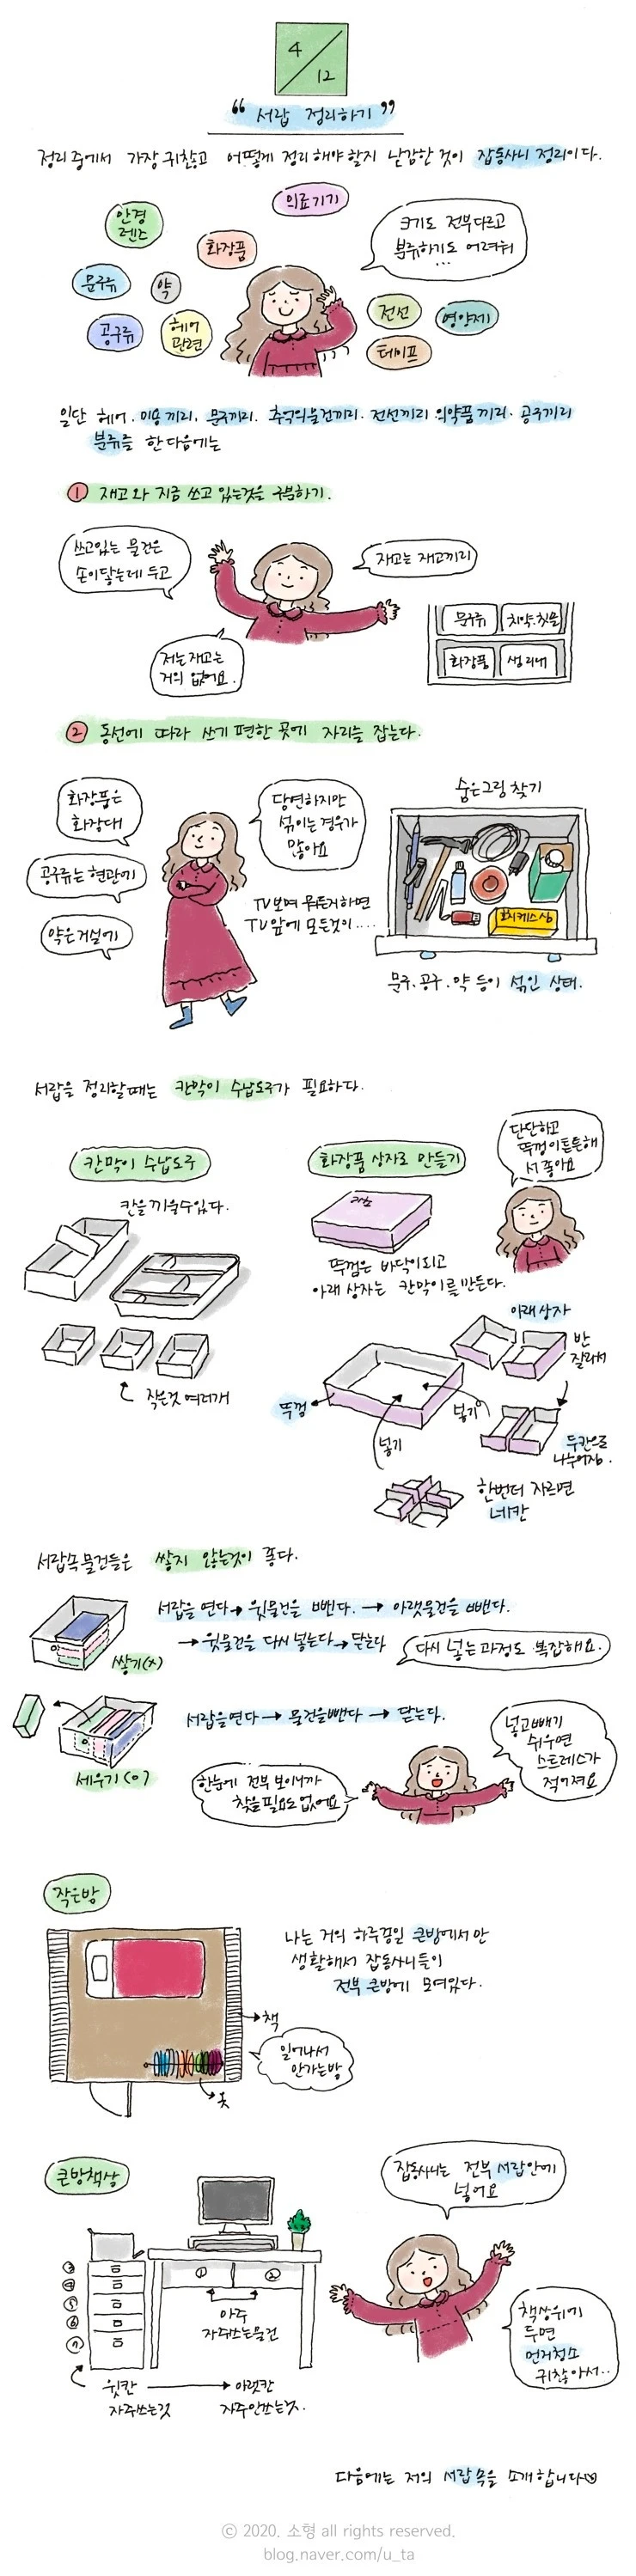 4
12
“서랍 정리하기”
정리 중에서 가장 귀찮고 어떻게 정리해야 할지 난감한 것이 잡동사니 정리이다.
의료기기
안경
렌즈
화장품
크기도 전부다르고
분류하기도 어려워
...
문구류
약
공구류
헤어
관련
전선
영양제
테이프
일단 헤어. 미용끼리. 문구끼리. 추억의물건끼리. 전선끼리 의약품끼리. 공구끼리
분류를 한다음에는
① 재고와 지금 쓰고 있는것을 구분하기.
쓰고있는 물건은
손이닿는데 두고
재고는 재고끼리
저는재고는
거의 없어요.
문구류
치약.칫솔
화장품
생리대
② 동선에 따라 쓰기 편한 곳에 자리를 잡는다.
화장품은
화장대
공구류는 현관에
약은거실에
당연하지만
섞이는 경우가
많아요
TV보며 뭐든거하면
TV앞에 모든것이....
숨은그림 찾기
문구.공구.약 등이 섞인 상태.
서랍을 정리할때는 칸막이 수납도구가 필요하다.
칸막이 수납도구
칸을끼울수있다.
작은것 여러개
화장품 상자로 만들기
단단하고
뚜껑이튼튼해
서 좋아요
뚜껑은 바닥이되고
아래 상자는 칸막이를만든다.
아래상자
반
잘라서
뚜껑
넣기
넣기
두칸으로
나누어짐.
한번더 자르면
네칸
서랍속물건들은 쌓지 않는것이 좋다.
쌓기(x)
서랍을 연다→윗물건을 뺀다.→아랫물건을 뺀다.
→윗물건을 다시넣는다→닫는다
다시 넣는과정도 복잡해요.
세우기(o)
서랍을연다→물건을뺀다→닫는다.
한눈에 전부 보이니까
찾을필요도없어요
넣고빼기
쉬우면
스트레스가
적어져요
작은방
책
옷
일어나서
안가는방
나는 거의 하루종일 큰방에서만
생활해서 잡동사니들이
전부 큰방에 모여있다.
큰방책상
①
②
아주
자주쓰는물건
③
④
⑤
⑥
⑦
윗칸
자주쓰는것
아랫칸
자주안쓰는것.
잡동사니는 전부 서랍안에
넣어요
책상위에
두면
먼지청소
귀찮아서..
다음에는 저의 서랍속을 소개합니다
© 2020. 소형 all rights reserved.
blog.naver.com/u_ta